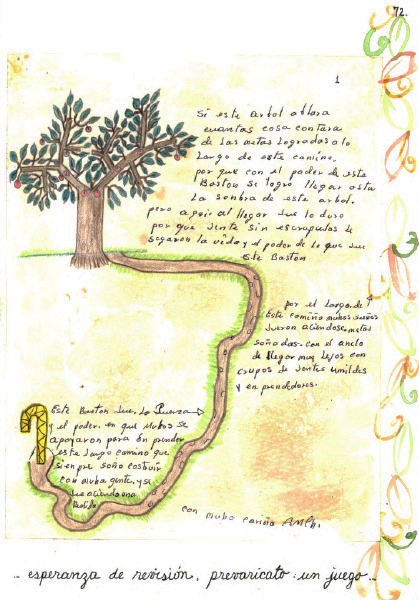 72.
1
Si este arbol ablara
cuantas cosa contara
de las metas logradas a lo
largo de este camino.
por que con el poder de este
Baston se logro llegar asta
la sonbra de este arbol.
pero aqui al llegar fue lo duro
por que jente sin escrupulos le
segaron la vida y el poder de lo que fue
este Baston
por el largo de
este camino muhos sueños
fueron aciendose metas
soñadas. con el anelo
de llegar muy lejos con
grupos de jentes umildes
y en prendedores.
Este Baston fue. La Fuerza
y el poder. en que muhos se
apoyaron para en prender
este largo camino que
sienpre soño costruir
con muha gente. y se
fue aciendo una
con muho cariño
... esperanza de revisión, prevaricato: un juego...